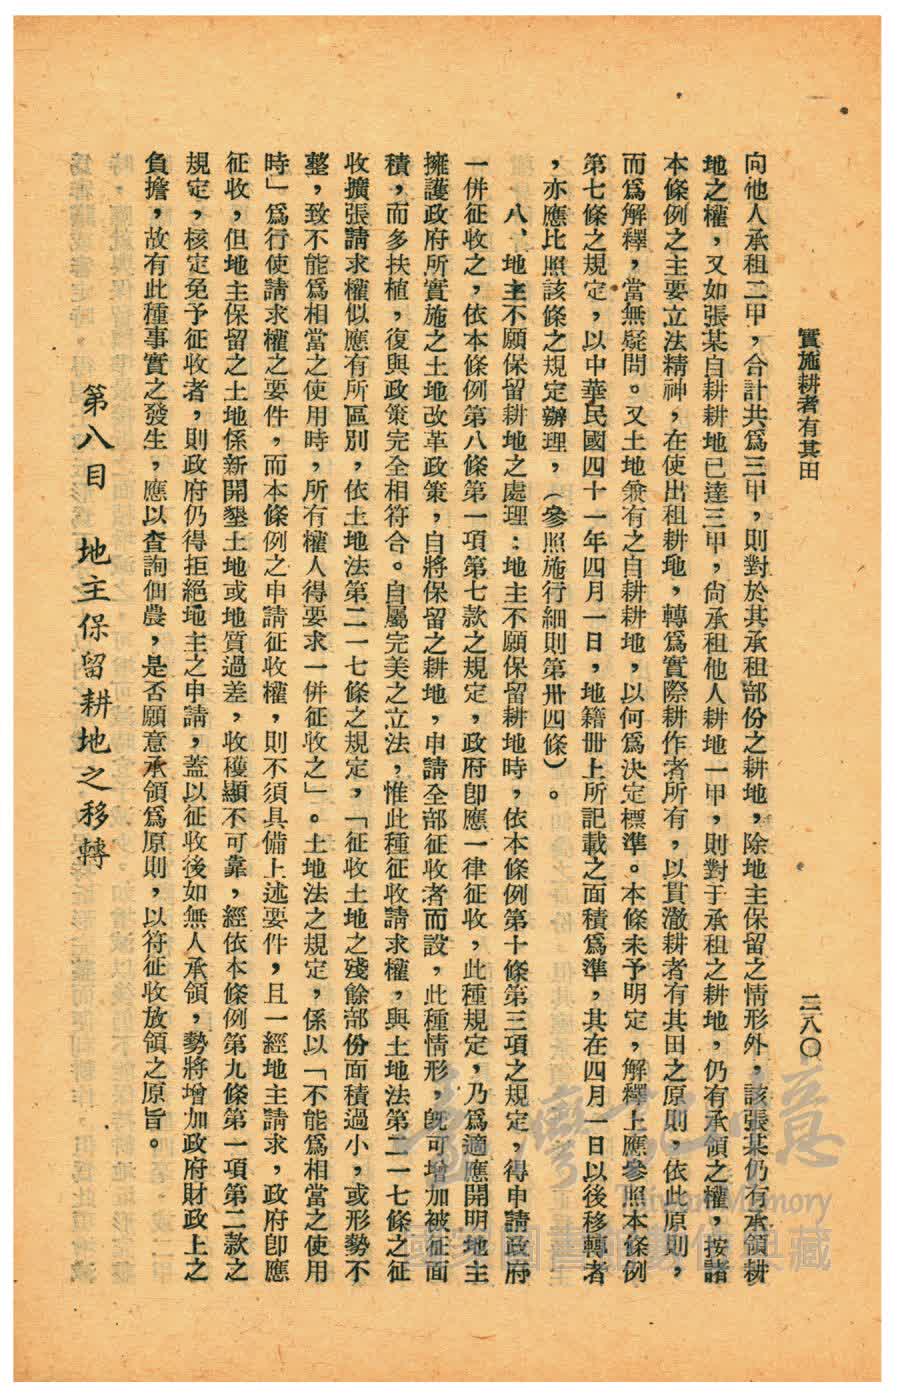 實施耕者有其田
二八〇
向他人承租二甲，合計共爲三甲，則對於其承租部份之耕地，除地主保留之情形外，該張某仍有承領耕
地之權，又如張某自耕耕地已達三甲，尙承租他人耕地一甲，則對于承租之耕地，仍有承領之權，按諸
本條例之主要立法精神，在使出租耕地，轉爲實際耕作者所有，以貫澈耕者有其田之原則，依此原則，
而爲解釋，當無疑問。又土地兼有之自耕耕地，以何爲決定標準。本條未予明定，解釋上應參照本條例
第七條之規定，以中華民國四十一年四月一日，地籍冊上所記載之面積爲準，其在四月一日以後移轉者
，亦應比照該條之規定辦理，（參照施行細則第卅四條）。
八、地主不願保留耕地之處理：地主不願保留耕地時，依本條例第十條第三項之規定，得申請政府
一併征收之，依本條例第八條第一項第七款之規定，政府卽應一律征收，此種規定，乃爲適應開明地主
擁護政府所實施之土地改革政策，自將保留之耕地，申請全部征收者而設，此種情形，旣可增加被征面
積，而多扶植，復與政策完全相符合。自屬完美之立法，惟此種征收請求權，與土地法第二一七條之征
收擴張請求權似應有所區別，依土地法第二一七條之規定，「征收土地之殘餘部份面積過小，或形勢不
整，致不能爲相當之使用時，所有權人得要求一併征收之」。土地法之規定，係以「不能爲相當之使用
時」爲行使請求權之要件，而本條例之申請征收權，則不須具備上述要件，且一經地主請求，政府卽應
征收，但地主保留之土地係新開墾土地或地質過差，收穫顯不可靠，經依本條例第九條第一項第二款之
規定，核定免予征收者，則政府仍得拒絕地主之申請，蓋以征收後如無人承領，勢將增加政府財政上之
負擔，故有此種事實之發生，應以查詢佃農，是否願意承領爲原則，以符征收放領之原旨。
第八目　地主保留耕地之移轉
臺灣
Taiwan Memory
國家圖書館
典藏